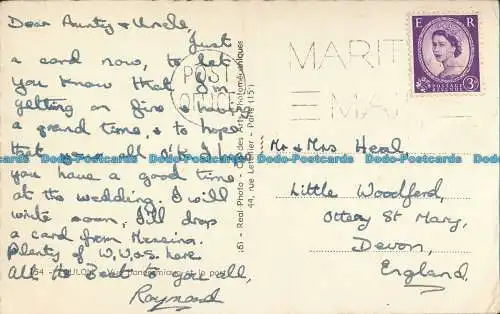 Dear Aunty & Uncle,
Just
a card now, to let
you know that I'm
getting on fine & having
a grand time, & to hope
that you all o.k. I hope
you have a good time
at the wedding. I will
write soon, I'll drop
a card from Messina.
Plenty of W.W.O.S. here
All the Best to you all,
Raymond
POST
OFFICE
MARIT
MAI
E R
POSTAGE
REVENUE
3D
Mr & Mrs Heal
Little Woodford,
Ottery St Mary,
Devon,
England.
Real-Photo
44, rue Letellier - Paris (15)
TOULON
Dodo-Postcards Dodo-Postcards Dodo-Postcards Dodo-Postcards Dodo-Postcards